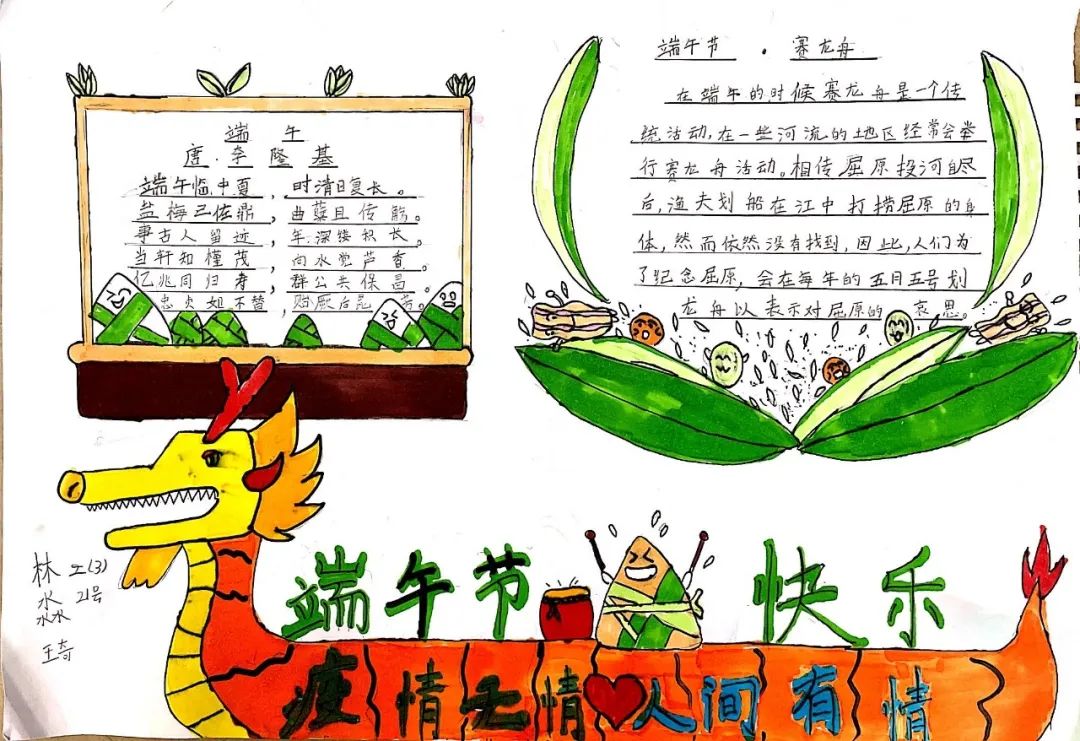 端 午
唐·李隆基
端午临中夏，时清日复长。
盐梅已佐鼎，曲蘖且传觞。
事古人留迹，年深缕积长。
当轩知槿茂，向水觉芦香。
亿兆同归寿，群公共保昌。
忠贞如不替，贻厥后昆芳。
端午节 · 赛龙舟
在端午的时候赛龙舟是一个传
统活动，在一些河流的地区经常会举
行赛龙舟活动。相传屈原投河自尽
后，渔夫划船在江中打捞屈原的身
体，然而依然没有找到，因此，人们为
了纪念屈原，会在每年的五月五号划
龙舟以表示对屈原的哀思。
端午节快乐
疫情无情人间有情
林 二(3)
淼 21号
琦